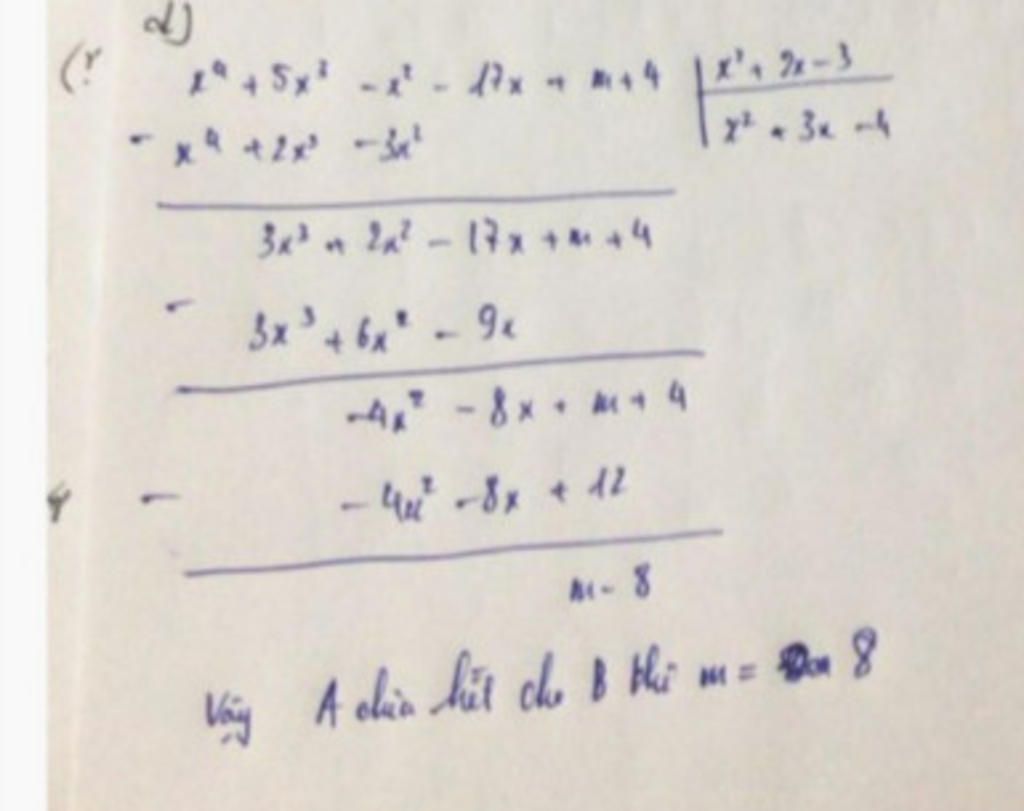 d)
x⁴ + 5x³ - x² - 17x + m + 4 | x² + 2x - 3
- x⁴ + 2x³ - 3x² | x² + 3x - 4
3x³ + 2x² - 17x + m + 4
- 3x³ + 6x² - 9x
-4x² - 8x + m + 4
- -4x² - 8x + 12
m - 8
Vậy A chia hết cho B thì m = 8